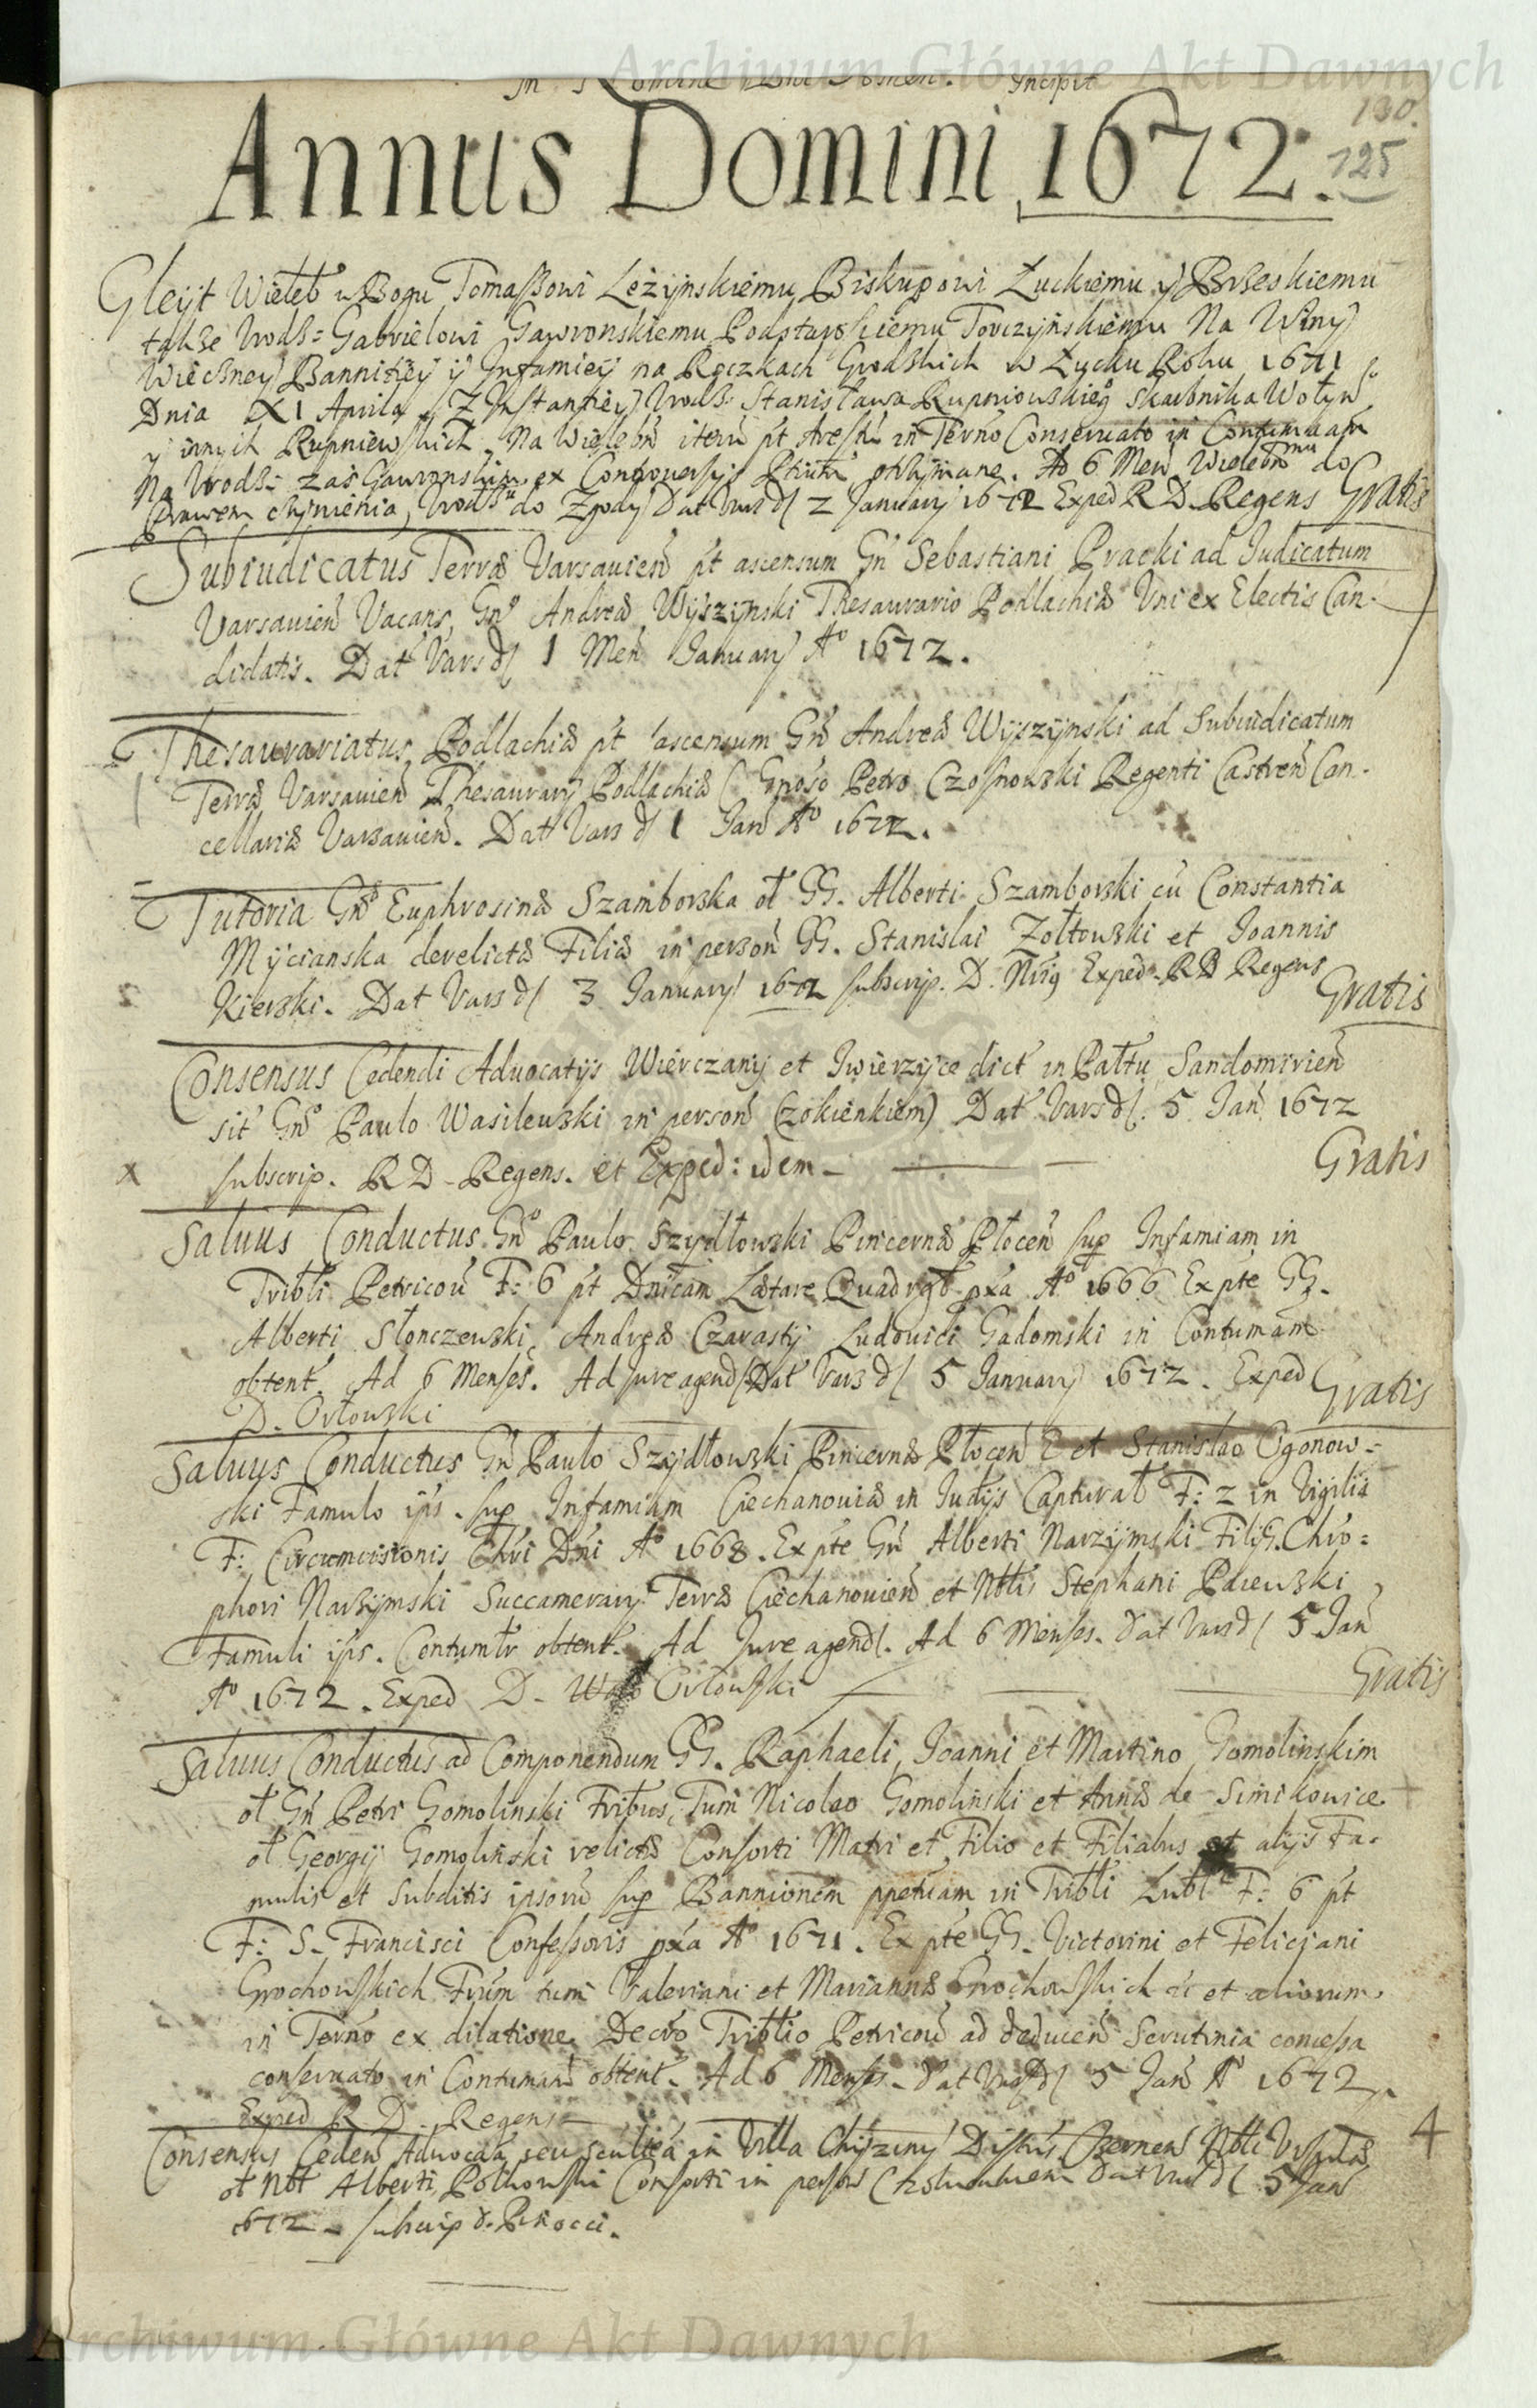 Archiwum Główne Akt Dawnych
In Nomine Domini Amen. Incipit
130.
Annus Domini 1672.
125
Gleÿt Wieleb w Bogu Tomaszowi Leżÿnskiemu Biskupowi Łuckiemu ÿ Brzeskiemu
także Urodz: Gabrielowi Gawronskiemu Podstarosciemu Torczÿnskiemu Na Winÿ
Wieczneÿ Bannitÿeÿ ÿ Infamieÿ na Roczkach Grodzkich w Łucku Roku 1671
Dnia XI Aprila Z Instantieÿ Urodz: Stanisława Rupniowskieg° Skarbnika Wołÿn
ÿ innych Rupniewskich. Na Wielebn iterum pt in Termo Conservato in Contumaam
Na Urodz: zas Gawronskim ex Controversÿs Ptium otrzÿmane. Ad 6 Men Wielebnmu do
Prawem czÿnienia, Urodzu do Zgodÿ Dat Vars d( 2 Januarÿ 1672 Exped R D. Regens Gratis
Subiudicatus Terræ Varsavien pt ascensum Gn Sebastiani Pracki ad Iudicatum
Varsavien Vacans, Gn° Andreæ Wÿszÿnski Thesaurario Podlachiæ Uni ex Electis Can-
didatis. Dat Vars d( 1 Men Januarÿ A° 1672.
Thesaurariatus Podlachiæ pt ascensum Gn Andreæ Wÿszÿnski ad Subiudicatum
Terræ Varsavien Thesaurarÿ Podlachiæ Gnoso Petro Czosnowski Regenti Castren Can-
cellariæ Varsavien. Dat Vars d( 1 Jan A° 1672.
Tutoria Gn° Euphrosinæ Szamborska oł GG. Alberti Szamborski cu Constantia
Mÿcianska derelictæ Filiæ in person GG. Stanislai Zołtowski et Joannis
Kierski. Dat Vars d( 3 Januarÿ 1672 subscrip. D. Nrig Exped. R D Regens
Gratis
Consensus Cedendi Advocatÿs Wierczanÿ et Iwierzÿce dict in Pałtu Sandomirien
sit Gn° Paulo Wasilewski in person Czokienkiem) Dat Vars d(. 5 Jan 1672
x subscrip. R D. Regens. et Exped: idem - Gratis
Salvus Conductus Gn° Paulo Szÿdłowski Pincernæ Płocen sup Infamiam in
Tribli Petricov F: 6 pt Dnicam Lætare Quadrgl pxa A° 1666 Ex pte GG.
Alberti Słonczewski, Andreæ Czarastÿ Ludovici Gadomski in Contumam
obtent. Ad 6 Menses. Ad Jure agend( Dat Vars d( 5 Januarÿ 1672. Exped
D. Orłowski Gratis
Salvus Conductus Gn Paulo Szÿdłowski Pincernæ Płocen E et Stanislao Ogonow-
ski Famulo ips. sup Infamiam Ciechanoviæ in Iudÿs Captural F: 2 in Vigilia
F: Circumcisionis Chri Dni A° 1668. Ex pte Gn Alberti Narzÿmski Filÿ G. Chro=
phori Narzÿmski Succamerarÿ Terræ Ciechanovien et Nblis Stephani Paiewski
Famuli ips. Contumlr obtent. Ad Jure agend(. Ad 6 Menses. Dat Vars d( 5 Jan
A° 1672. Exped D. Orłowski Gratis
Salvus Conductus ad Componendum GG. Raphaeli, Joanni et Martino Gomolinskim
oł Gn Petri Gomolinski Fribus, Tum Nicolao Gomolinski et Annæ de Simikowice
oł Georgÿ Gomolinski relictæ Consorti Matri et Filio et Filiabus et alÿs Fa-
mulis et Subditis ipsoru sup Bannionem ppetuam in Tribli Lubl F: 6 pt
F: S. Francisci Confessoris pxa A° 1671. Ex pte GG. Victorini et Feliciani
Grochowskich Frum tum Valeriani et Mariannæ Grochowskich et aliorum
in Termo ex dilatione Decro Triblio Petricov ad deducen Scrutinia concessa
conservato in Contumam obtent. Ad 6 Menses. Dat Vars d( 5 Jan A° 1672.
Exped R D. Regens
Consensus Ceden Advocata seu scultea in Villa Chÿzinÿ Nbli Ursulæ
oł Nbl Alberti Consorti in person Dat Vars d( 5 Jan
1672 - subscrip
4
Archiwum Główne Akt Dawnych